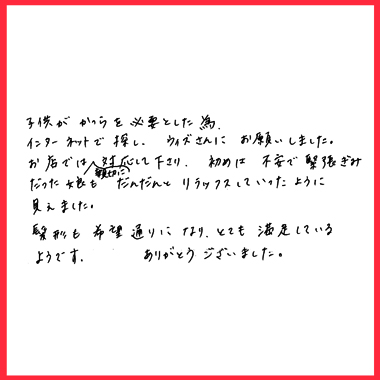 子供が かつらを 必要とした 為、
インターネットで 探し、 ウィズさんに お願いしました。
お店では 親切に 対応して下さり、 初めは 不安で 緊張ぎみ
だった 娘も だんだんと リラックスして いったように
見えました。
髪形も 希望 通りに なり、 とても 満足している
ようです。 ありがとう ございました。